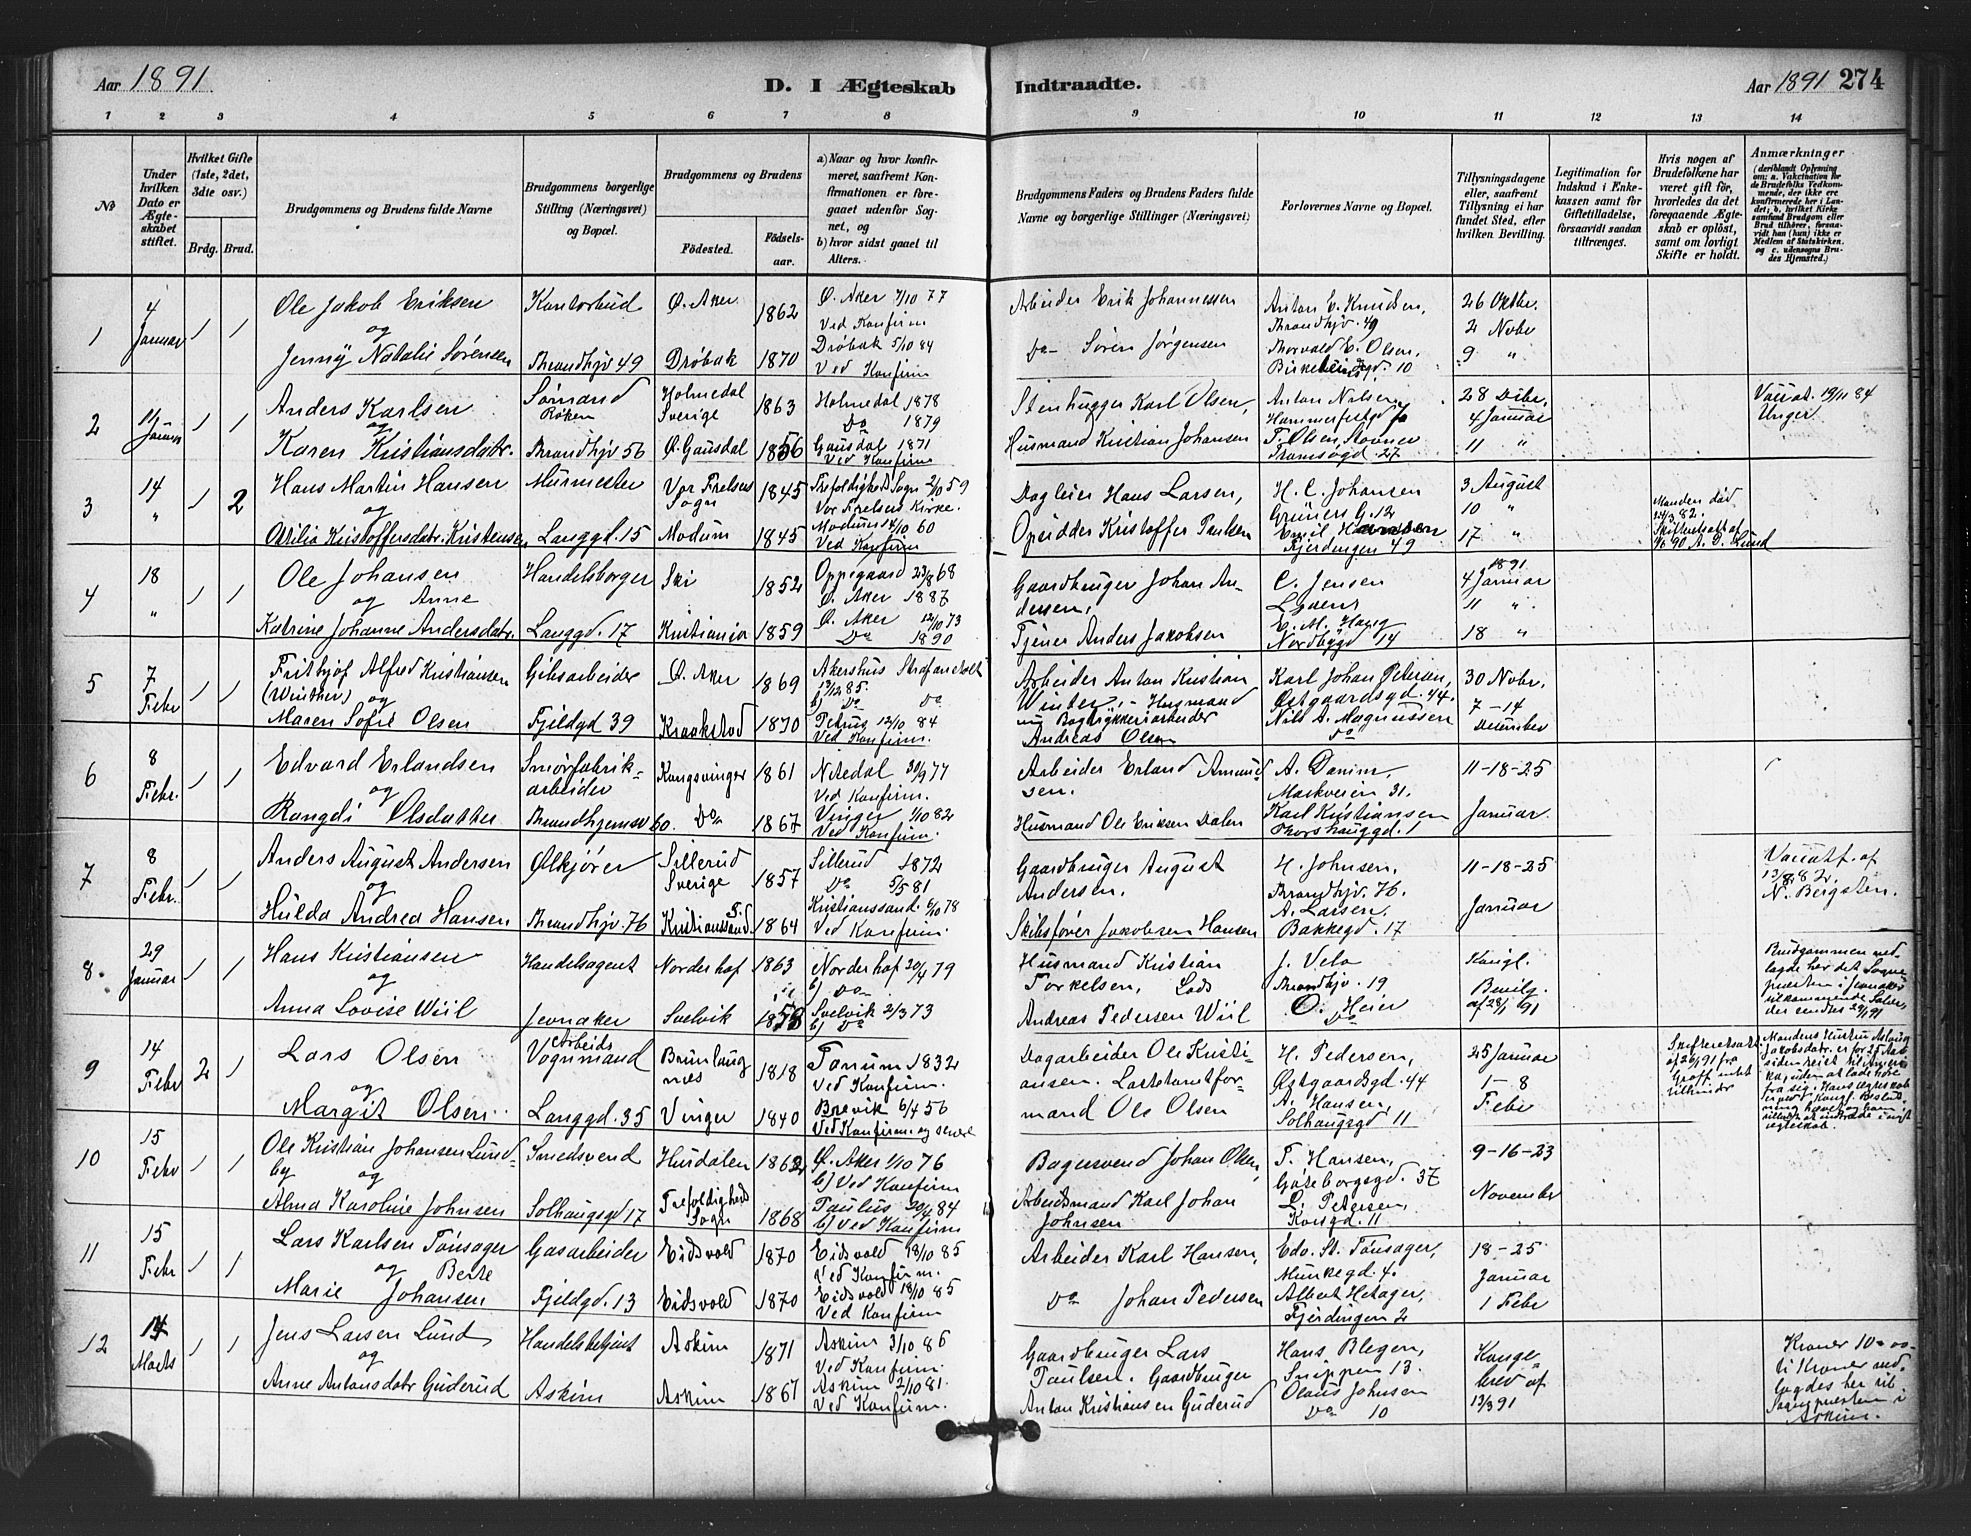 Aar 1891
D. I Ægteskab
Indtraadte.
Aar 1891 274
1 2 3 4 5 6 7 8 9 10 11 12 13 14
No
Under hvilken Dato er Ægteskabet stiftet.
Hvilket Gifte (1ste, 2det, 3dte osv.)
Brdg. Brud.
Brudgommens og Brudens fulde Navne
Brudgommens borgerlige Stilling (Næringsvei) og Bopæl.
Brudgommens og Brudens
Fødested.
Fødselsaar.
a) Naar og hvor konfirmeret, saafremt Konfirmationen er foregaaet udenfor Sognet, og
b) hvor sidst gaaet til Alters.
Brudgommens Faders og Brudens Faders fulde Navne og borgerlige Stillinger (Næringsvei)
Forlovernes Navne og Bopæl.
Tillysningsdagene eller, saafremt Tillysning ei har fundet Sted, efter hvilken Bevilling.
Legitimation for Indskud i Enkekassen samt for Giftetilladelse, forsaavidt saadan tiltrænges.
Hvis nogen af Brudefolkene har været gift før, hvorledes da det foregaaende Ægteskab er opløst, samt om lovligt Skifte er holdt.
Anmærkninger
1
4 Januar
1 1
Ole Jakob Eriksen
og
Jenny Natalie Sørensen
Kontorbud
Brandhjv 49
Ø. Aker 1862
Drøbak 1870
Ø. Aker 7/10 77
Ved Konfirm
Drøbak 5/10 84
Ved Konfirm
Arbeider Erik Johannessen
Do Søren Jørgensen
Anton E. Knudsen,
Brandhjv. 49
Thorvald E. Olsen,
10
26 Oktbr.
2 Novbr
9 "
2
11/ Januar
1 1
Anders Karlsen
og
Karen Kristiansdatr.
Sømand
Røken
Brandhjv 56
Holmedal
Sverige 1863
Ø. Gausdal 1856
Holmedal 1878
Do 1879
Gausdal 1871
Ved Konfirm
Stenhugger Karl Olsen,
Husmand Kristian Johansen
Anton Nilsen
T. Olsen, Stovner
Tromsøgd. 27
28 Dcbr.
4 Januar
11 "
Vaccat. 19/11 84
Unger
3
14 "
1 2
Hans Martin Hansen
og
Otilia Kristoffersdatr. Kristensen
Murmester
Langgd. 15
Vor Frelsers
Sogn 1845
Modum 1845
Trefoldigheds Sogn 2/10 59
Vor Frelsers Kirke.
Modum 14/10 60
Ved Konfirm
Dagleier Hans Larsen,
Opsidder Kristoffer Paulsen
H. C. Johansen
Grüners G. 12
Emil Hansen
Fjerdingen 49
3 August
10 "
17 "
Manden død
82.
Skifteretsatt. af
90 A. O. Lund
4
18 "
1 1
Ole Johansen
og Anne
Katrine Johanne Andersdatr.
Handelsborger
Langgd. 17
Ski 1852
Kristiania 1859
Oppegaard 23/8 68
Ø. Aker 1887
Ø. Aker 12/10 73
Do 1890
Gaardbruger Johan Andersen,
Tjener Anders Jakobsen
C. Jensen
C. M. Haug
Nordbygd 14
1891
4 Januar
11 "
18 "
5
7 Febr
1 1
Frithjof Alfred Kristiansen
(Winther) og
Maren Sofie Olsen
Gibsarbeider
Fjeldgd 39
Ø. Aker 1869
Kraakstad 1870
Akershus Strafanstalt
13/12 85.
b) Do Do
Petrus 12/10 84
Ved Konfirm.
Arbeider Anton Kristian
Winter, - Husmand
og Bogtrykkeriarbeider
Andreas Olsen
Karl Johan Petersen,
Østgaardsgd. 44.
Nils A. Magnussen
Do
30 Nobr,
7 - 14
December
6
8 Febr.
1 1
Edvard Erlandsen
og
Rangdi Olsdatter
Smørfabrikarbeider
Brandhjemsv 60.
Kongsvinger 1861
Do 1867
Nitedal 30/9 77
Ved Konfirm.
Vinger 1/10 82
Ved Konfirm.
Arbeider Erland Amundsen.
Husmand Ole Eriksen Dalen
A. Damm,
Markveien 31.
Karl Kristiansen
Thorshauggd. 1
11-18-25
Januar
7
8 Febr.
1 1
Anders August Andersen
og
Hulda Andrea Hansen
Ølkjører
Brandhjv. 76
Sillerud
Sverige 1857
Kristianssand S. 1864
Sillerud 1872
Do 5/5 81
Kristianssand. 6/10 78
Ved Konfirm.
Gaardbruger August
Andersen.
Skibsfører Jakobsen Hansen
H. Johnsen,
Brandhjv. 76.
A. Larsen,
Bakkegd. 17
11-18-25
Januar
Vaccatt. af
13/8 82.
N. Bergsten.
8.
29 Januar
1 1
Hans Kristiansen
og
Anna Lovise Wiil
Handelsagent
Jevnaker
Norderhof 1863
Svelvik 1853
Norderhof 20/4 79
b) Do
Svelvik 2/3 73
b) Do
Husmand Kristian
Torkelsen, Lods
Andreas Pedersen Wiil
J. Velo
Brandhjv. 19
O. Heier
Do
Kongl.
Bevilg.
af 28/1 91
Brudgommen nedlagde her det Sognepræsten i Jevnaker tilkommende
9
14 Febr
2 1
Lars Olsen
og
Margit Olsen
Arbeids
Vognmand
Langgd. 35
Brunlaugnes 1818
Vinger 1840
Tanum 1832
Ved Konfirm.
Brevik 6/4 56
Ved Konfirm. og senere
Dagarbeider Ole Kristiansen.
Lastetomtformand Ole Olsen
H. Pedersen,
Østgaardsgd. 44
A. Hansen,
Solhaugsgd 11
25 Januar
1 - 8
Febr
Skifteretsatt.
af 26/1 91 fra
Mandens Hustru Aslaug
Jakobsdatr. er for 25 Aar
siden reist til Amerika, uden at lade høre
fra sig. Hans Ægteskab
er ved Kongl. Beslutning hævet og ham
tilladt at indtræde i nyt
Ægteskab.
10
15 Febr
1 1
Ole Kristian Johansen Lundby og
Alma Karoline Johnsen
Smedsvend
Solhaugsgd 17
Husdalen 1862
Trefoldigheds
Sogn 1868
Ø. Aker 1/10 76
b) Ved Konfirm
Paulus 20/4 84
b) Ved Konfirm
Bagersvend Johan Olsen,
Arbeidsmand Karl Johan
Johnsen
T. Hansen,
Gøteborgsgd. 37
L. Petersen,
Korsgd. 11
9-16-23
November
11
15 Febr
1 1
Lars Karlsen Tønsager
og Berte
Marie Johansen
Gasarbeider
Fjeldgd. 13
Eidsvold 1870
Eidsvold 1870
Eidsvold 18/10 85
Ved Konfirm.
Eidsvold 18/10 85
Ved Konfirm
Arbeider Karl Hansen,
Do Johan Pedersen
Edv. St. Tønsager,
Munkegd. 4.
Albert Hetager,
Fjerdingen 2
18-25
Januar
1 Febr
12
14 Marts
1 1
Jens Larsen Lund
og
Anne Antonsdatr Guderud
Handelsbetjent
Askim
Askim 1871
Askim 1861
Askim 3/10 86
Ved Konfirm.
Askim 2/10 81.
Ved Konfirm.
Gaardbruger Lars
Paulsen. Gaardbruger
Anton Kristiansen Guderud
Hans Blegen,
Snippen 13.
Olaus Johnsen
Do 10
Kongebrev af
13/3 91
Kroner 10 - 00
ti Kroner nedlagdes her til
Sognepræsten i
Askim.